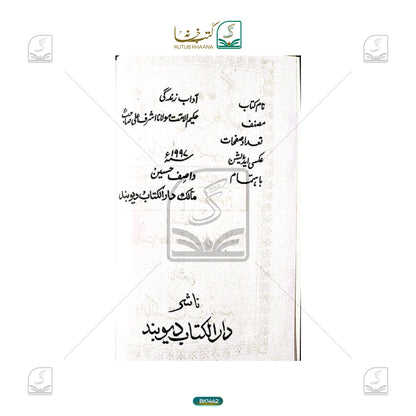 کتب خانہ
KUTUB KHAANA
نام کتاب آداب زندگی
مصنف حکیم الامت مولانا اشرف علی صاحب
تعداد صفحات
عکسی ایڈیشن سنہ ۱۹۹۷ء
باہتمام واصف حسین
مالک دارالکتاب دیوبند
ناشر
دارالکتاب دیوبند
BK1442